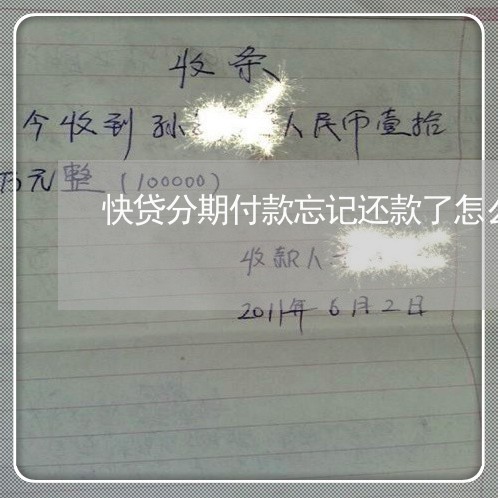 收条
今收到孙 人民币壹拾
万元整（100000）
快贷分期付款忘记还款了怎么
收款人
2011年6月2日